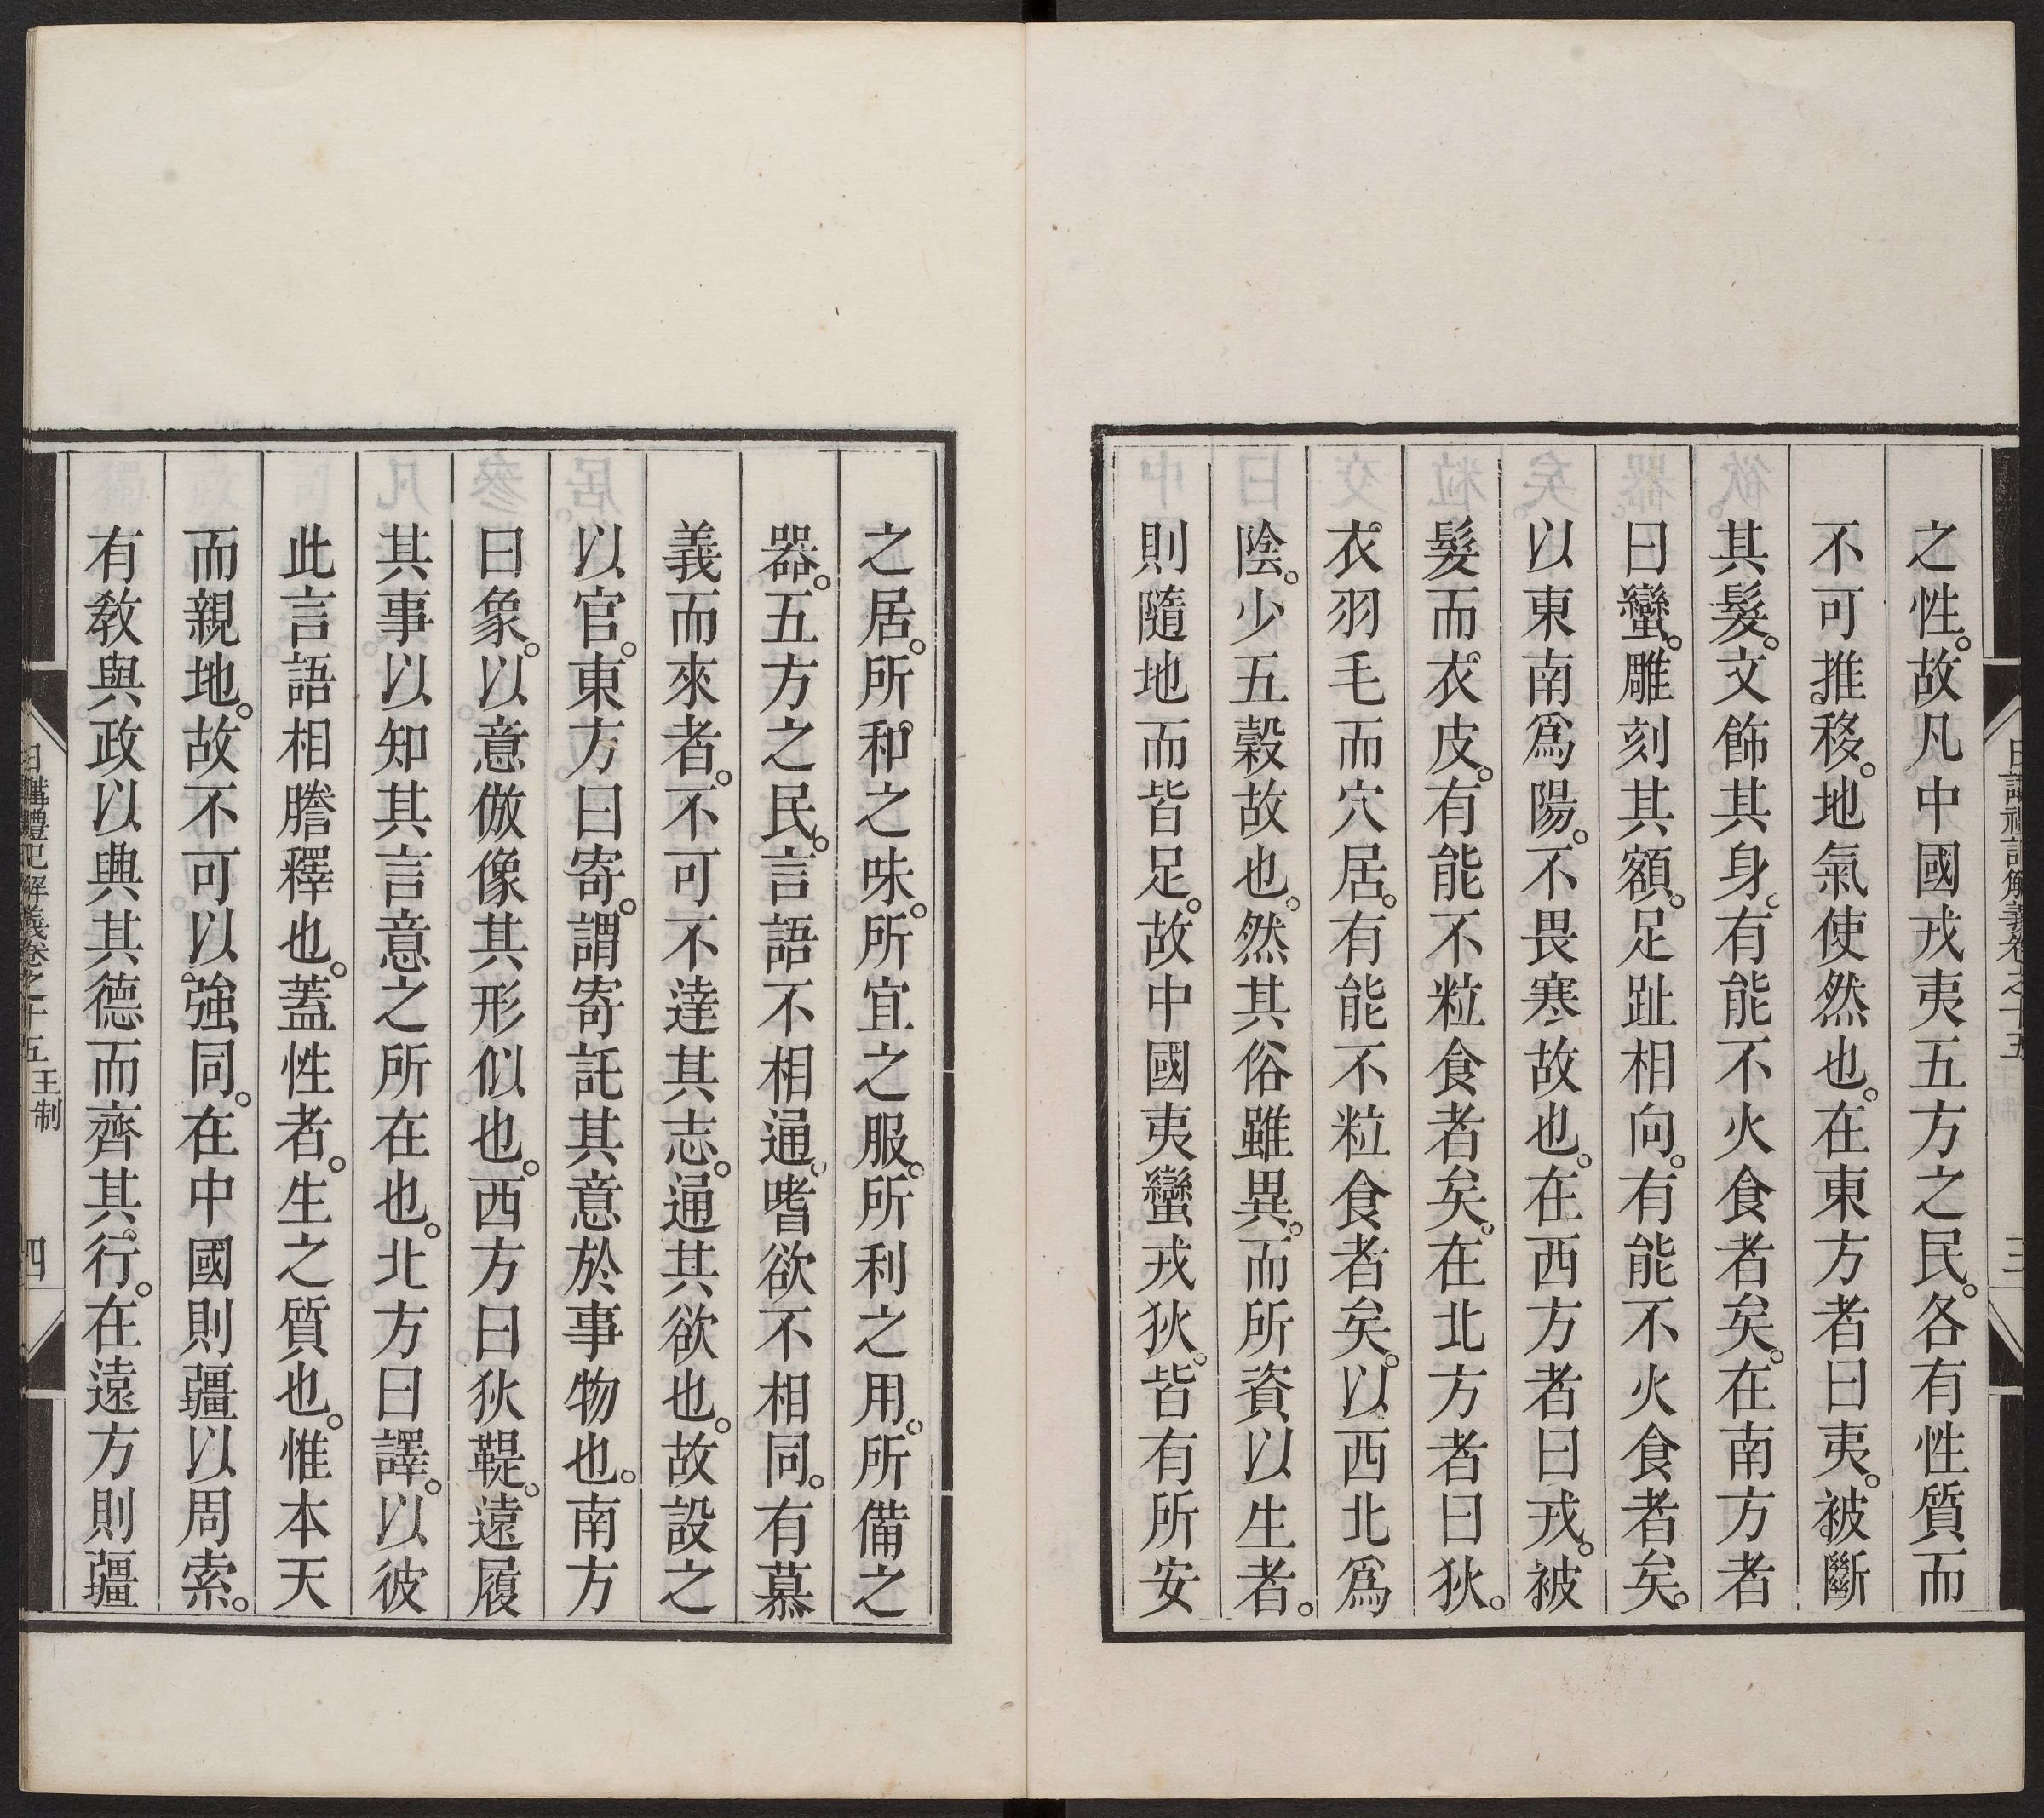 之性。故凡中國戎夷五方之民。各有性質而
不可推移。地氣使然也。在東方者曰夷。被斷
其髮。文飾其身。有能不火食者矣。在南方者
曰蠻。雕刻其額。足趾相向。有能不火食者矣。
以東南爲陽。不畏寒故也。在西方者曰戎。被
髮而衣皮。有能不粒食者矣。在北方者曰狄。
衣羽毛而穴居。有能不粒食者矣。以西北爲
陰。少五穀故也。然其俗雖異。而所資以生者。
則隨地而皆足。故中國夷蠻戎狄。皆有所安
之居。所和之味。所宜之服。所利之用。所備之
器。五方之民。言語不相通。嗜欲不相同。有慕
義而來者。不可不達其志。通其欲也。故設之
以官。東方曰寄。謂寄託其意於事物也。南方
曰象。以意倣像其形似也。西方曰狄鞮。遠履
其事以知其言意之所在也。北方曰譯。以彼
此言語相謄釋也。蓋性者。生之質也。惟本天
而親地。故不可以強同。在中國則疆以周索。
有敎與政以興其德而齊其行。在遠方則疆
日講禮記解義卷之十五 王制 四